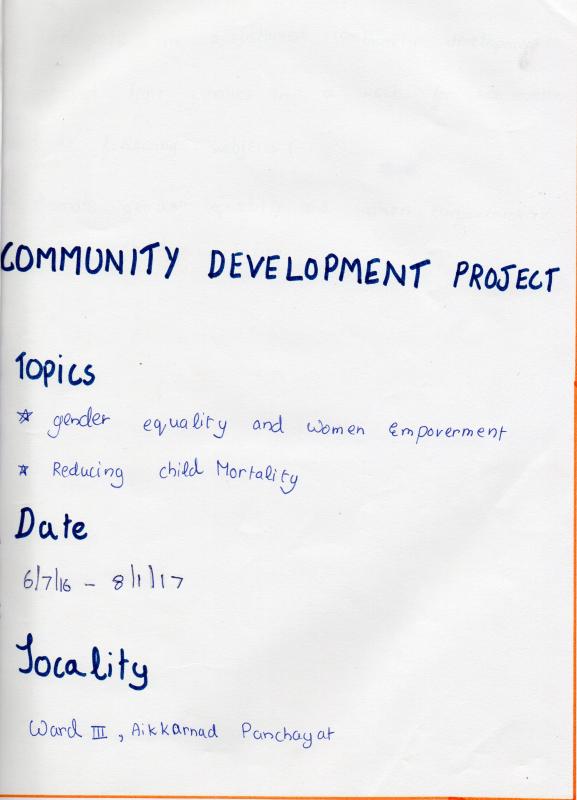 COMMUNITY DEVELOPMENT PROJECT
Topics
☆ gender equality and women Empoverment
☆ Reducing child Mortality
Date
6/7/16 - 8/1/17
Locality
Ward III, Aikkarnad Panchayat